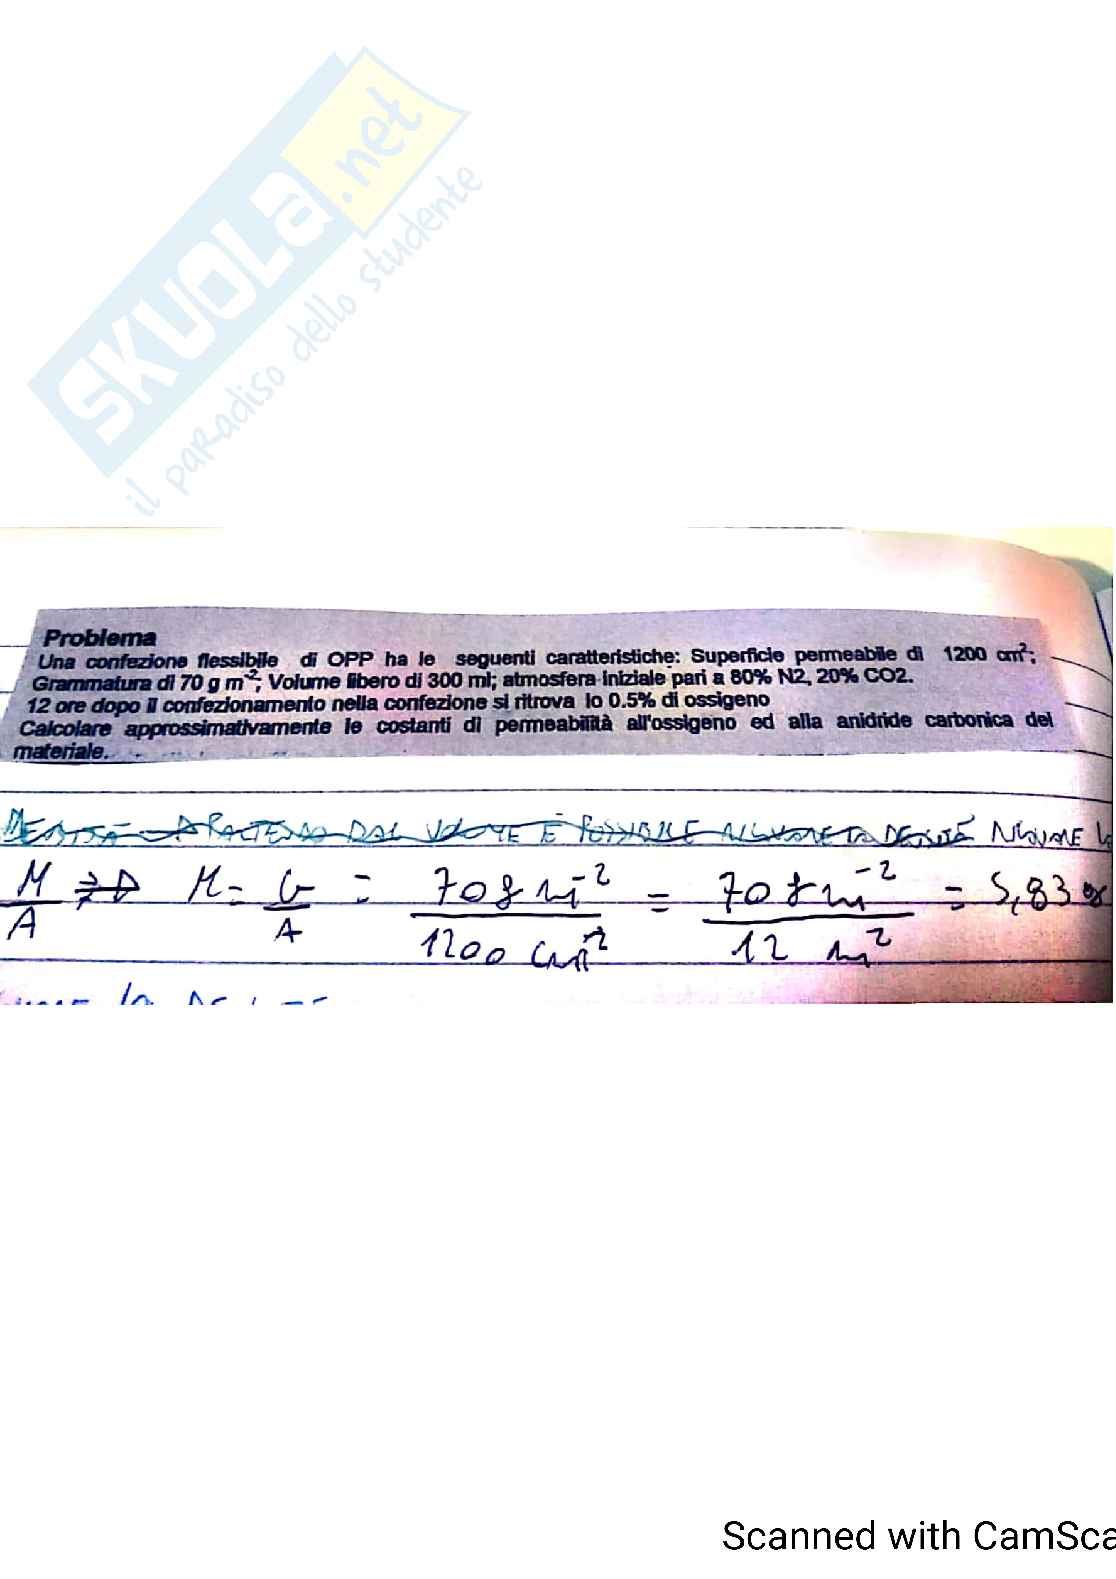 SKUOLA.net
il paradiso dello studente
Problema
Una confezione flessibile di OPP ha le seguenti caratteristiche: Superficie permeabile di 1200 cm²;
Grammatura di 70 g m⁻²; Volume libero di 300 ml; atmosfera iniziale pari a 80% N2, 20% CO2.
12 ore dopo il confezionamento nella confezione si ritrova lo 0.5% di ossigeno
Calcolare approssimativamente le costanti di permeabilità all'ossigeno ed alla anidride carbonica del
materiale.
DENSITÀ A PARTENDO DAL VOLUME È POSSIBILE RICAVARE LA DENSITÀ
M/A ⇒ M = G/A = 70 g m⁻² / 1200 cm² = 70 g m⁻² / 12 m² = 5,83
Scanned with CamSca